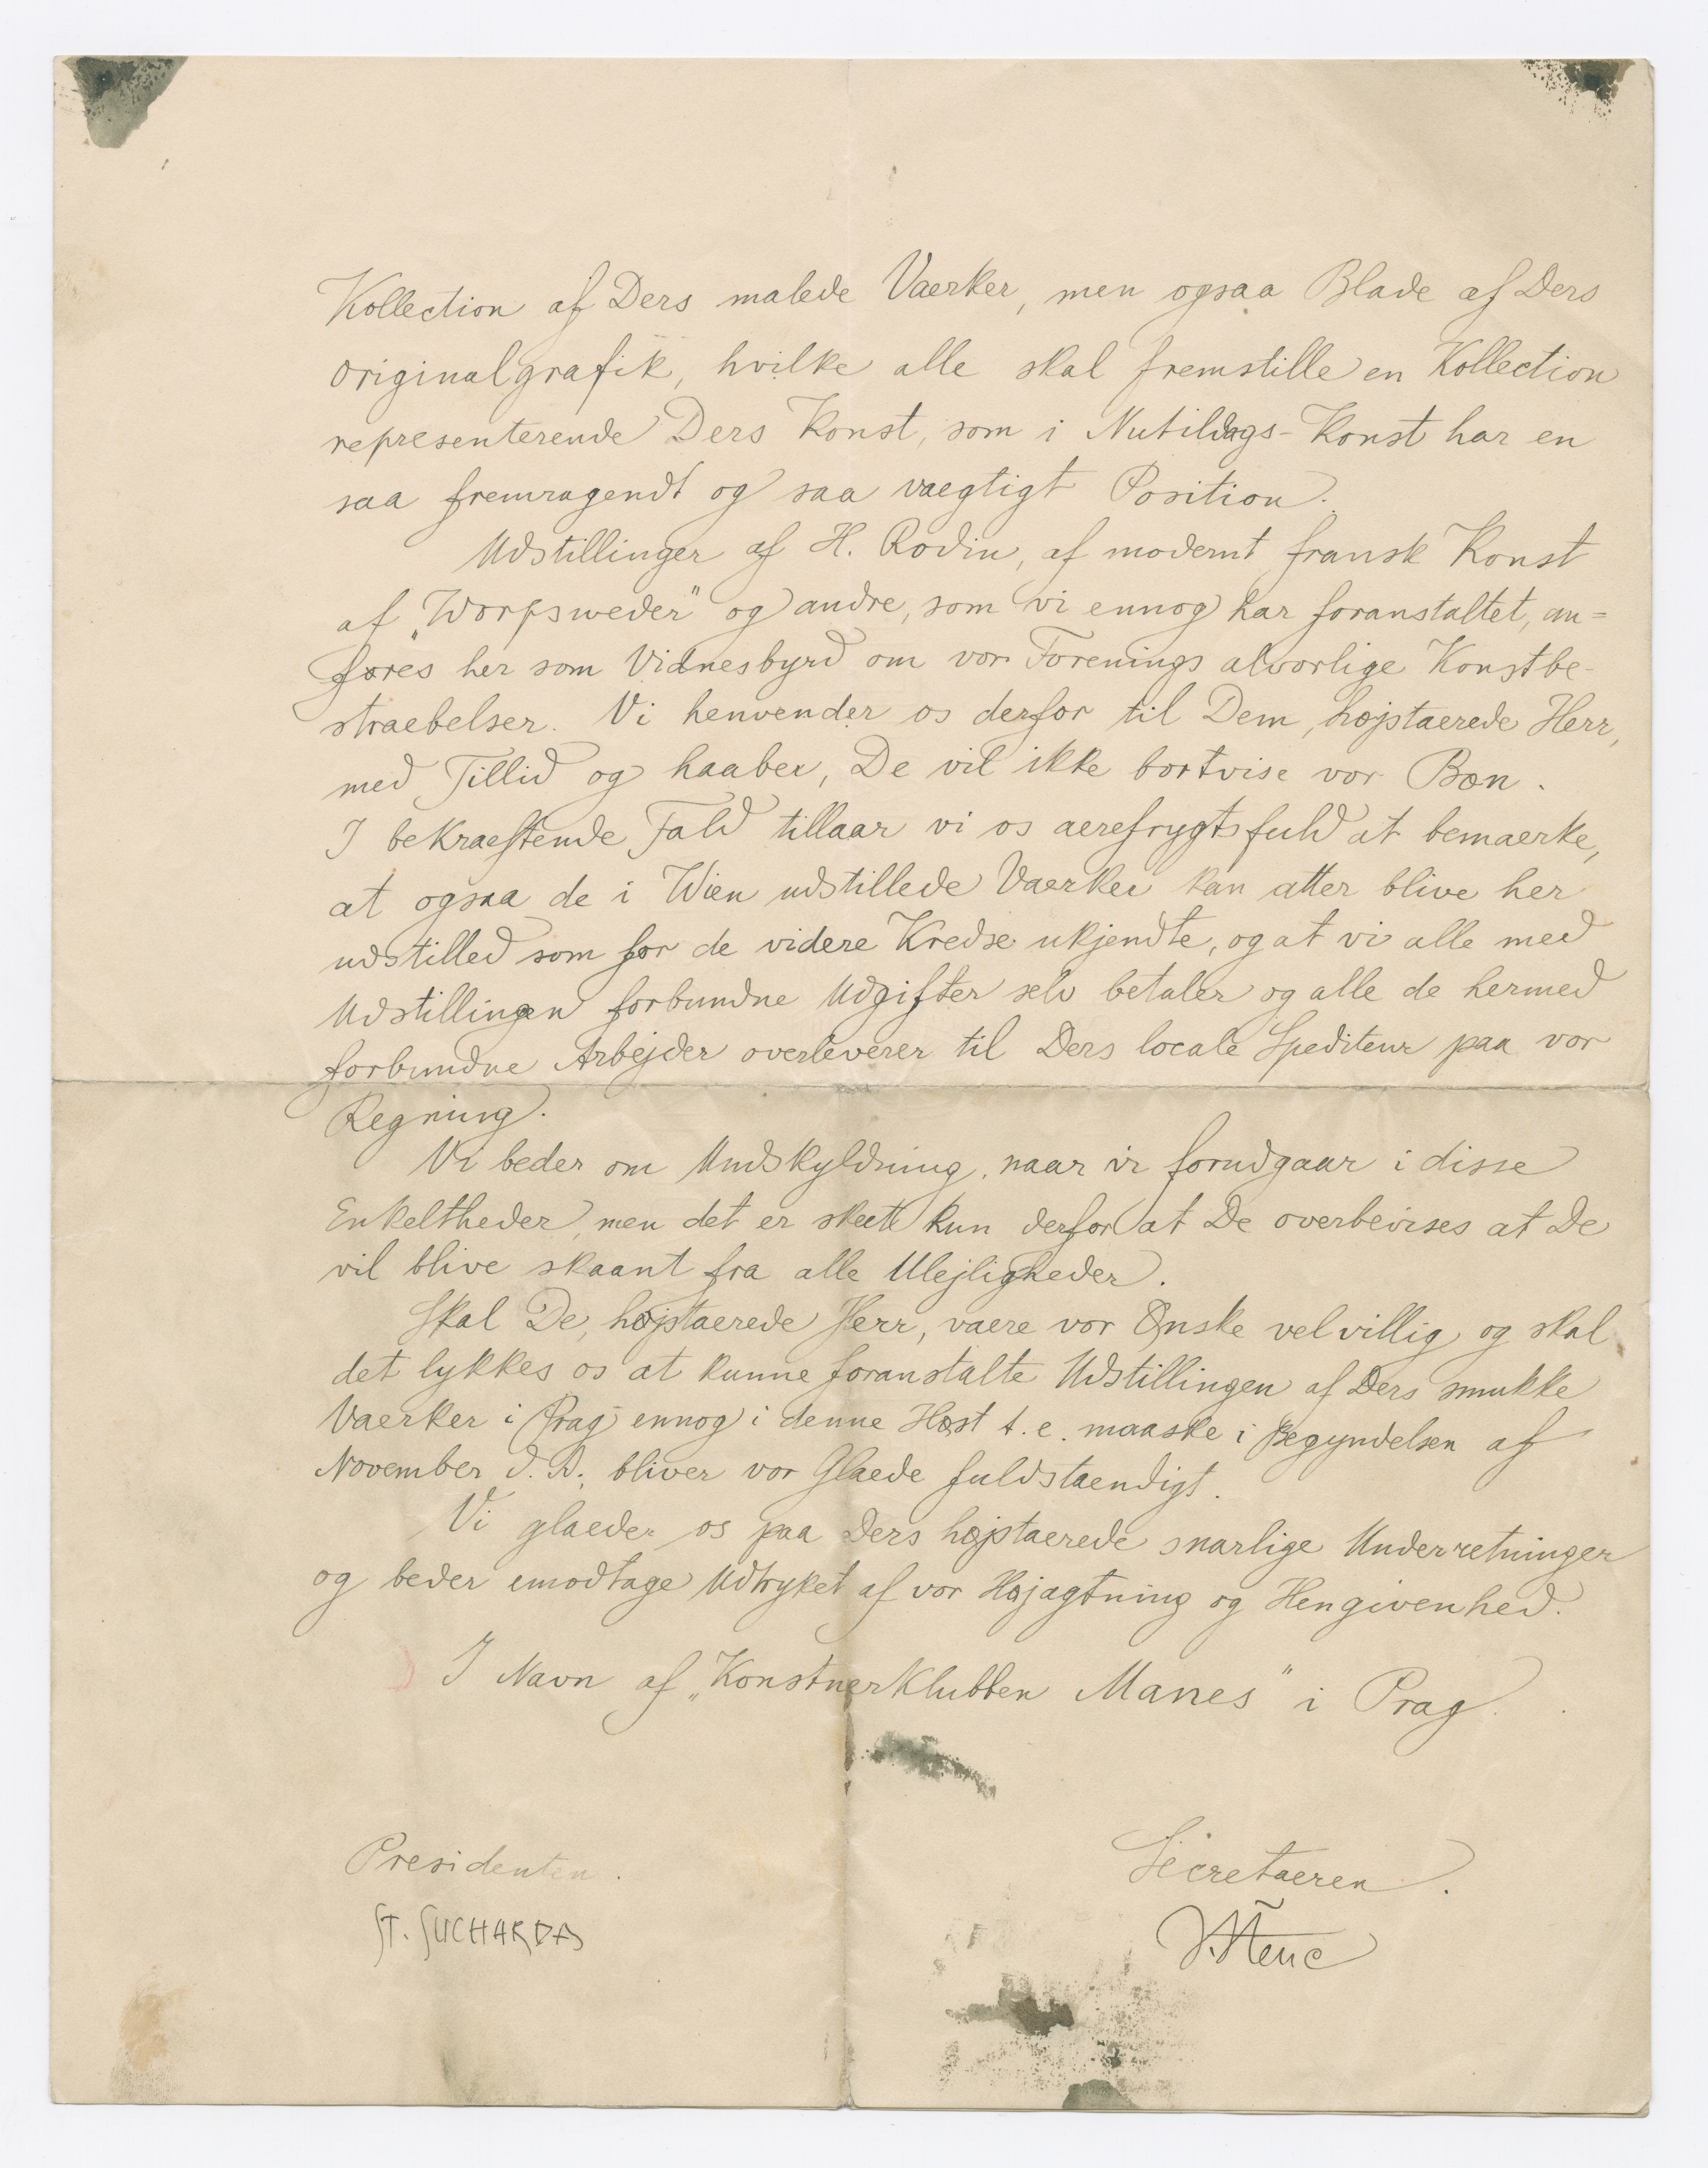 Kollection af Ders malede Vaerker, men ogsaa Blade af Ders
originalgrafik, hvilke alle skal fremstille en Kollection
representerende Ders Konst, som i Nutildags-Konst har en
saa fremragendt og saa vaegtigt Position.
Udstillinger af H. Rodin, af modernt fransk Konst
af „Worpsweder" og andre, som vi ennog har foranstaltet, an=
føres her som Vidnesbyrd om vor Forenings alvorlige Konstbe-
straebelser. Vi henvender os derfor til Dem, højstaerede Herr,
med Tillid og haaber, De vil ikke bortvise vor Bøn.
I bekraeftende Fald tillaar vi os aerefrygtsfuld at bemaerke,
at ogsaa de i Wien udstillede Vaerker kan atter blive her
udstilled som for de videre Kredse ukjendte, og at vi alle med
Udstillingen forbundne Udgifter selv betaler og alle de hermed
forbundne Arbejder overleverer til Ders locale Spediteur paa vor
Regning.
Vi beder om Undskyldning, naar vi forudgaar i disse
Enkeltheder, men det er skeete kun derfor at De overbevises at De
vil blive skaant fra alle Ulejligheder.
Skal De, højstaerede Herr, vaere vor Ønske velvillig og skal
det lykkes os at kunne foranstalte Udstillingen af Ders smukke
Vaerker i Prag ennog i denne Høst t. e. maaske i Begyndelsen af
November d. A., bliver vor Glaede fuldstaendigt.
Vi glaeder os paa Ders højstaerede snarlige Underretninger
og beder emodtage Udtryket af vor Højagtning og Hengivenhed.
I Navn af „Konstnerklubben Manes" i Prag.
Presidenten. Secretaeren.
ST. SUCHARDA V. Štenc